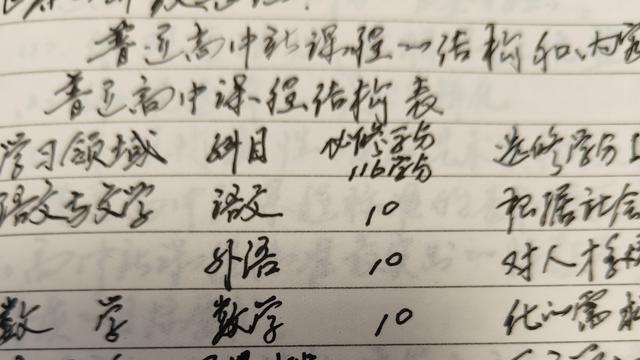 普通高中新课程的结构和内容
普通高中课程结构表
学习领域 科目 必修学分 选修学分
116学分
语文与文学 语文 10 根据社会
外语 10 对人才多样
数学 数学 10 化的需求